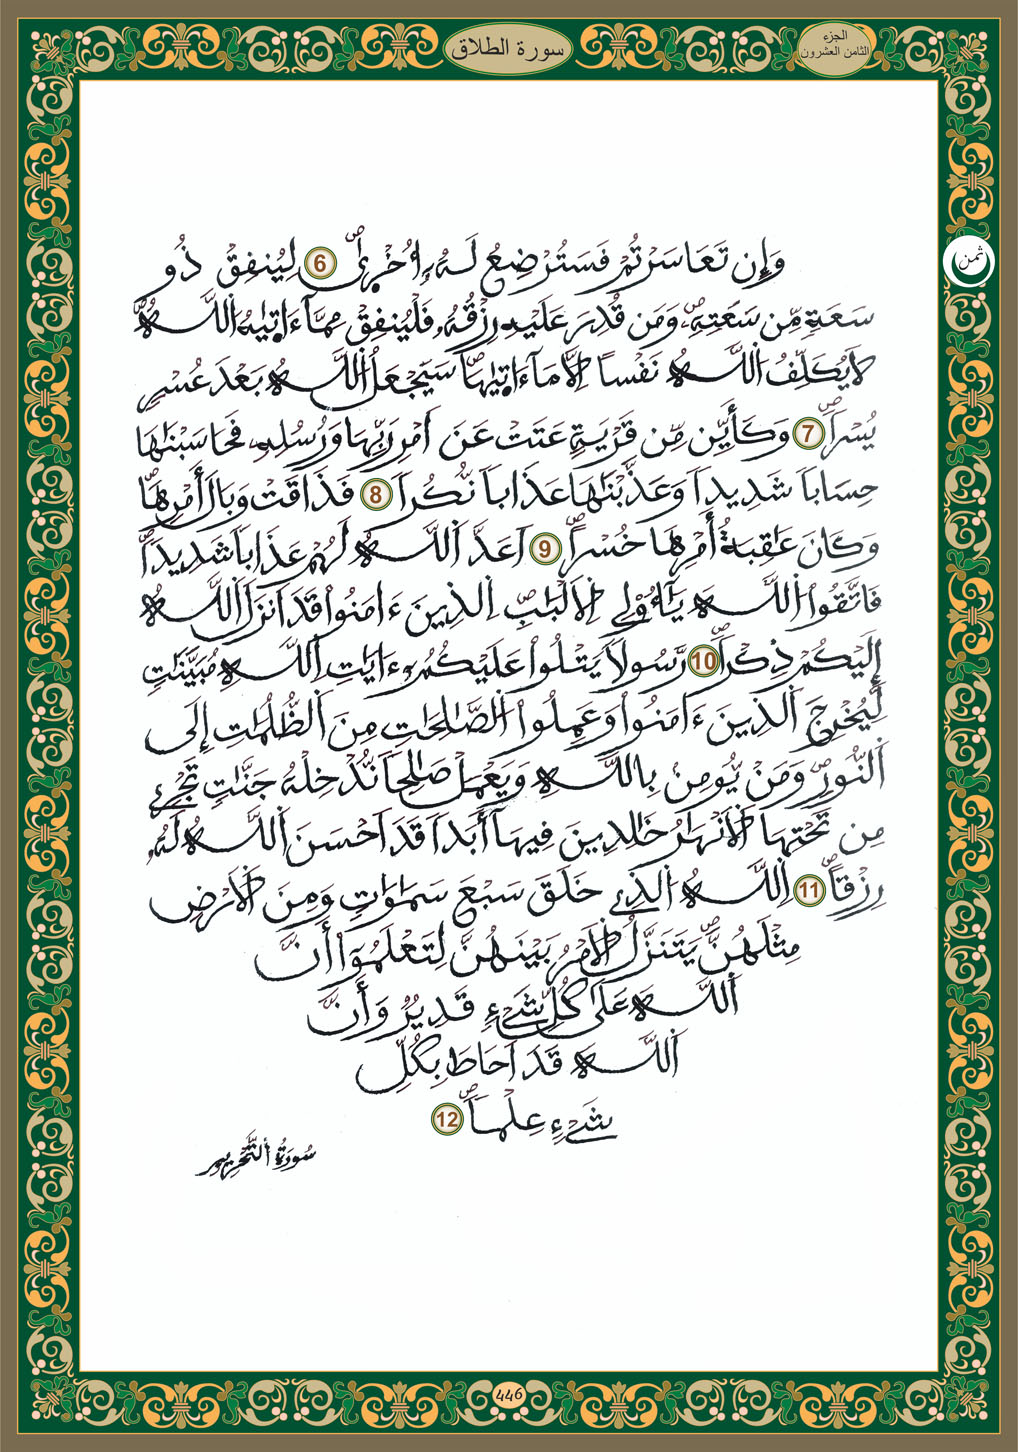 سورة الطلاق
الجزء
الثامن العشرون
ثمن
وَإِن تَعَاسَرْتُمْ فَسَتُرْضِعُ لَهُۥٓ أُخْر۪ىٰۖ 6 لِيُنفِقْ ذُو
سَعَةٍ مِّن سَعَتِهِۦۖ وَمَن قُدِرَ عَلَيْهِ رِزْقُهُۥ فَلْيُنفِقْ مِمَّآ ءَات۪يٰهُ اُ۬للَّهُۖ
لَا يُكَلِّفُ اُ۬للَّهُ نَفْساً اِلَّا مَآ ءَات۪يٰهَاۖ سَيَجْعَلُ اُ۬للَّهُ بَعْدَ عُسْرٖ
يُسْراٗۖ 7 وَكَأَيِّن مِّن قَرْيَةٍ عَتَتْ عَنَ اَمْرِ رَبِّهَا وَرُسُلِهِۦ فَحَاسَبْنَٰهَا
حِسَاباٗ شَدِيداٗ وَعَذَّبْنَٰهَا عَذَاباٗ نُّكُراٗ 8 فَذَاقَتْ وَبَالَ أَمْرِهَاۖ
وَكَانَ عَٰقِبَةُ أَمْرِهَا خُسْراًۖ 9 اَعَدَّ اَ۬للَّهُ لَهُمْ عَذَاباٗ شَدِيداٗۖ
فَاتَّقُواْ اُ۬للَّهَ يَٰٓأُوْلِے اِ۬لَالْبَٰبِۖ اِ۬لذِينَ ءَامَنُواْ قَدَ اَنزَلَ اَ۬للَّهُ
إِلَيْكُمْ ذِكْراٗۖ 10 رَّسُولاٗ يَتْلُواْ عَلَيْكُمُۥٓ ءَايَٰتِ اِ۬للَّهِ مُبَيَّنَٰتٖ
لِّيُخْرِجَ اَ۬لذِينَ ءَامَنُواْ وَعَمِلُواْ اُ۬لصَّٰلِحَٰتِ مِنَ اَ۬لظُّلُمَٰتِ إِلَى
اَ۬لنُّورِۖ وَمَنْ يُّومِنۢ بِاللَّهِ وَيَعْمَلْ صَٰلِحاٗ نُّدْخِلْهُ جَنَّٰتٖ تَجْرِے
مِن تَحْتِهَا اَ۬لَانْهَٰرُ خَٰلِدِينَ فِيهَآ أَبَداٗ قَدَ اَحْسَنَ اَ۬للَّهُ لَهُۥ
رِزْقاًۖ 11 اِ۬للَّهُ اُ۬لذِے خَلَقَ سَبْعَ سَمَٰوَٰتٖ وَمِنَ اَ۬لَارْضِ
مِثْلَهُنَّۖ يَتَنَزَّلُ اُ۬لَامْرُ بَيْنَهُنَّ لِتَعْلَمُوٓاْ أَنَّ
اَ۬للَّهَ عَلَىٰ كُلِّ شَےْءٖ قَدِيرٞ وَأَنَّ
اَ۬للَّهَ قَدَ اَحَاطَ بِكُلِّ
شَےْءٍ عِلْماٗۖ 12
سُورَةُ اُ۬لتَّحْرِيمِ
446